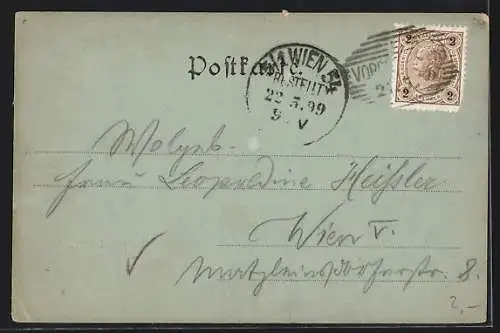 Postkarte.
5/1 WIEN 54
BESTELLT
22.5.99
9 V
VORS
2 2
2 2
Wolgeb.
Frau Leopoldine Heissler
Wien V.
Matzleinsdorferstr. 8.
2,-